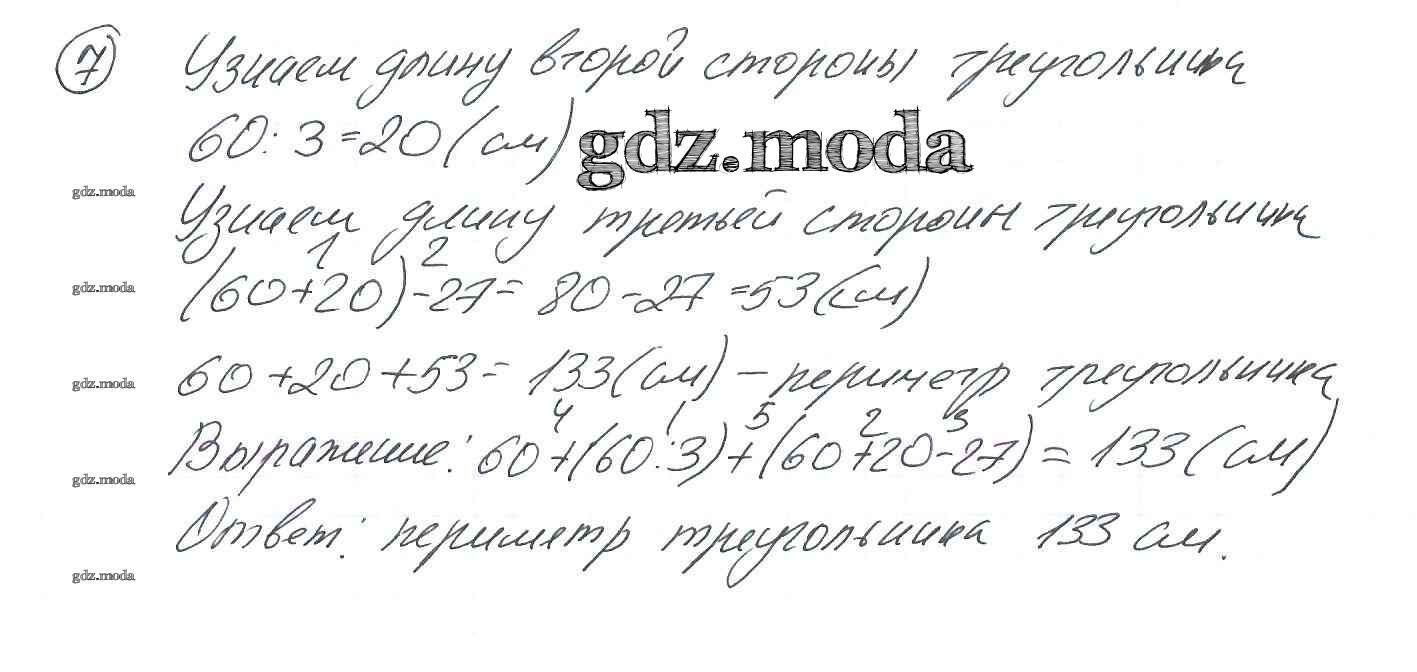 7 Узнаем длину второй стороны треугольника
60 : 3 = 20 (см) gdz.moda
gdz.moda
Узнаем длину третьей стороны треугольника
1 2
gdz.moda (60+20)-27= 80-27 =53(см)
gdz.moda 60+20+53= 133(см) – периметр треугольника
4 1 5 2 3
Выражение: 60+(60:3)+(60+20-27) = 133 (см)
gdz.moda
Ответ: периметр треугольника 133 см.
gdz.moda